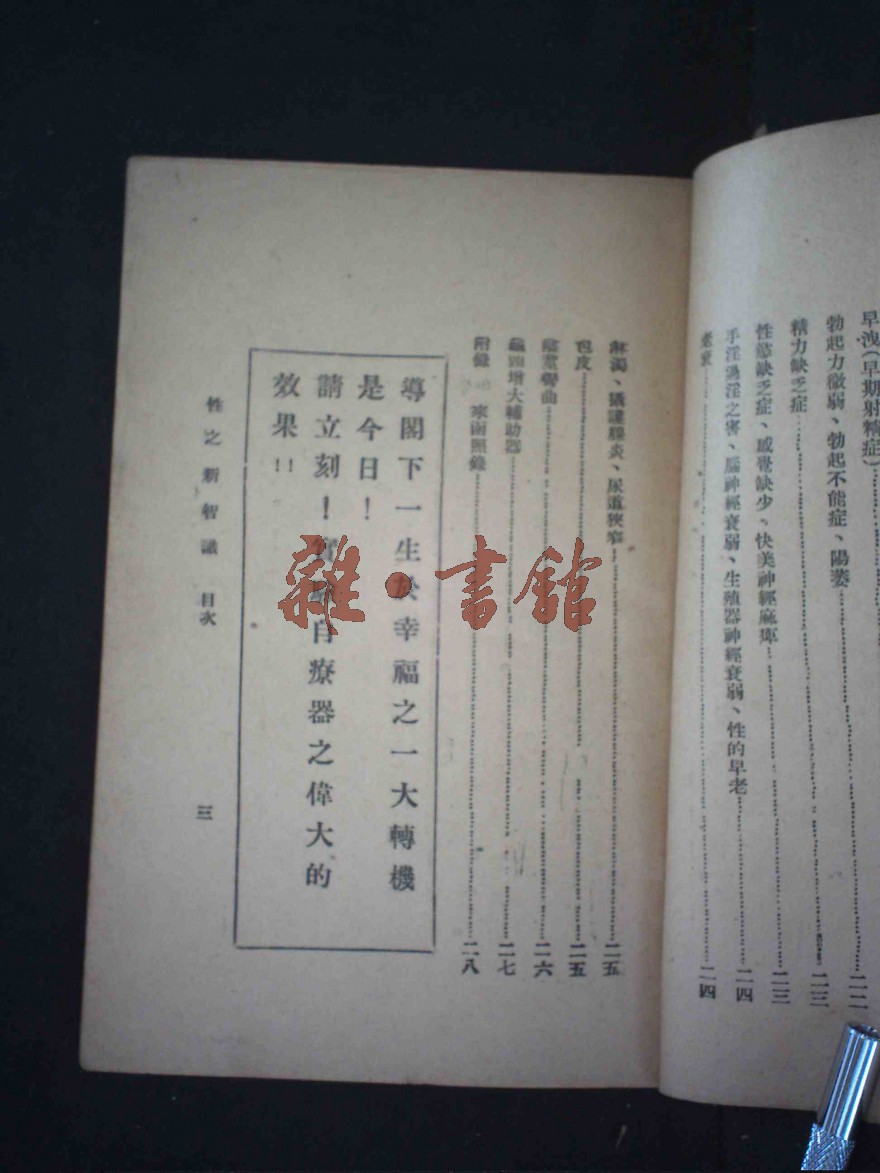 早洩(早期射精症)……二二
勃起力微弱、勃起不能症、陽萎……二三
精力缺乏症……二三
性慾缺乏症、感覺缺少、快美神經麻痺……二三
手淫過淫之害、腦神經衰弱、生殖器神經衰弱、性的早老……二四
二四
淋濁、攝護腺炎、尿道狹窄……二五
包皮……二五
陰莖彎曲……二六
龜頭增大輔助器……二七
附錄 來函照錄……二八
導閣下一生於幸福之一大轉機
是今日!
請立刻!實 自療器之偉大的
效果!!
性之新智識 目次
三
雜·書館